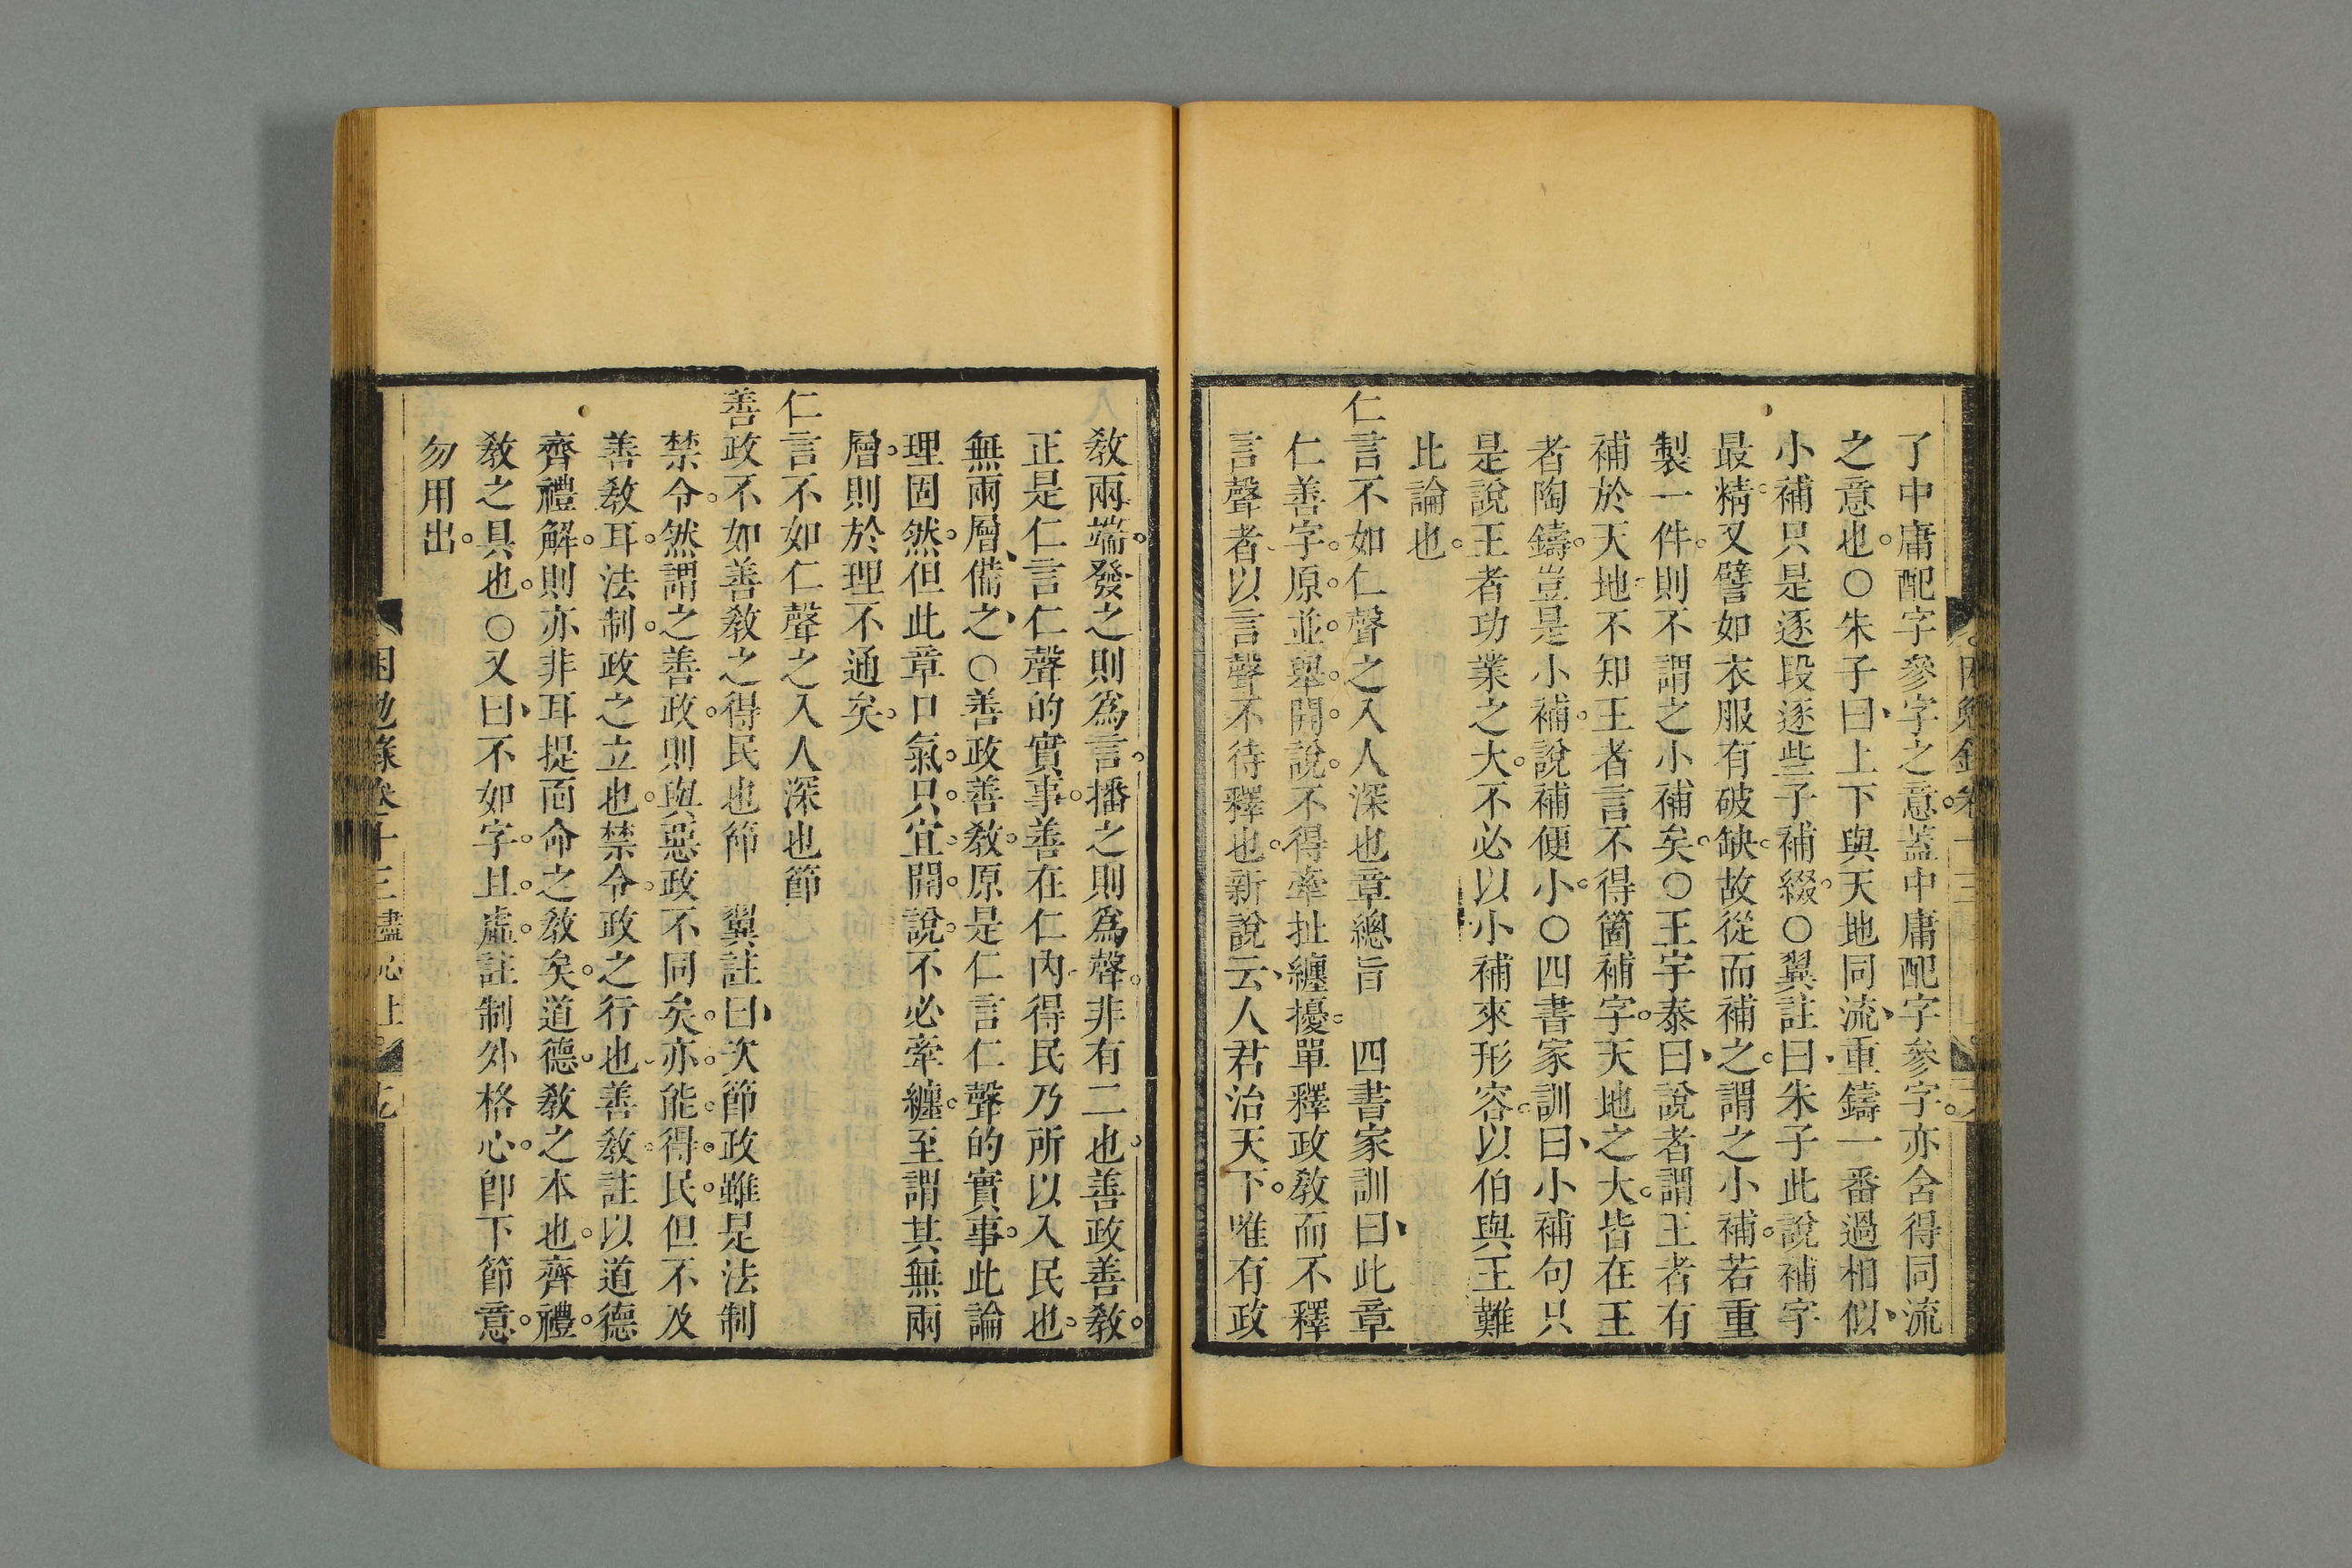 了中庸配字參字之意蓋中庸配字參字亦含得同流
之意也○朱子曰上下與天地同流重鑄一番過相似
小補只是逐段逐些子補綴○翼註曰朱子此說補字
最精又譬如衣服有破缺故從而補之謂之小補若重
製一件則不謂之小補矣○王宇泰曰說者謂王者有
補於天地不知王者言不得箇補字天地之大皆在王
者陶鑄豈是小補說補便小○四書家訓曰小補句只
是說王者功業之大不必以小補來形容以伯與王難
比論也
仁言不如仁聲之入人深也章總旨　四書家訓曰此章
仁善字原並舉開說不得牽扯纏擾單釋政教而不釋
言聲者以言聲不待釋也新說云人君治天下唯有政
教兩端發之則為言播之則為聲非有二也善政善教
正是仁言仁聲的實事善在仁內得民乃所以入民也
無兩層備之○善政善教原是仁言仁聲的實事此論
理固然但此章口氣只宜開說不必牽纏至謂其無兩
層則於理不通矣
仁言不如仁聲之入人深也節
善政不如善教之得民也節　翼註曰次節政雖是法制
禁令然謂之善政則與惡政不同矣亦能得民但不及
善教耳法制政之立也禁令政之行也善教註以道德
齊禮解則亦非耳提面命之教矣道德教之本也齊禮
教之具也○又曰不如字且虛註制外格心即下節意
勿用出
困勉錄卷十三盡心上